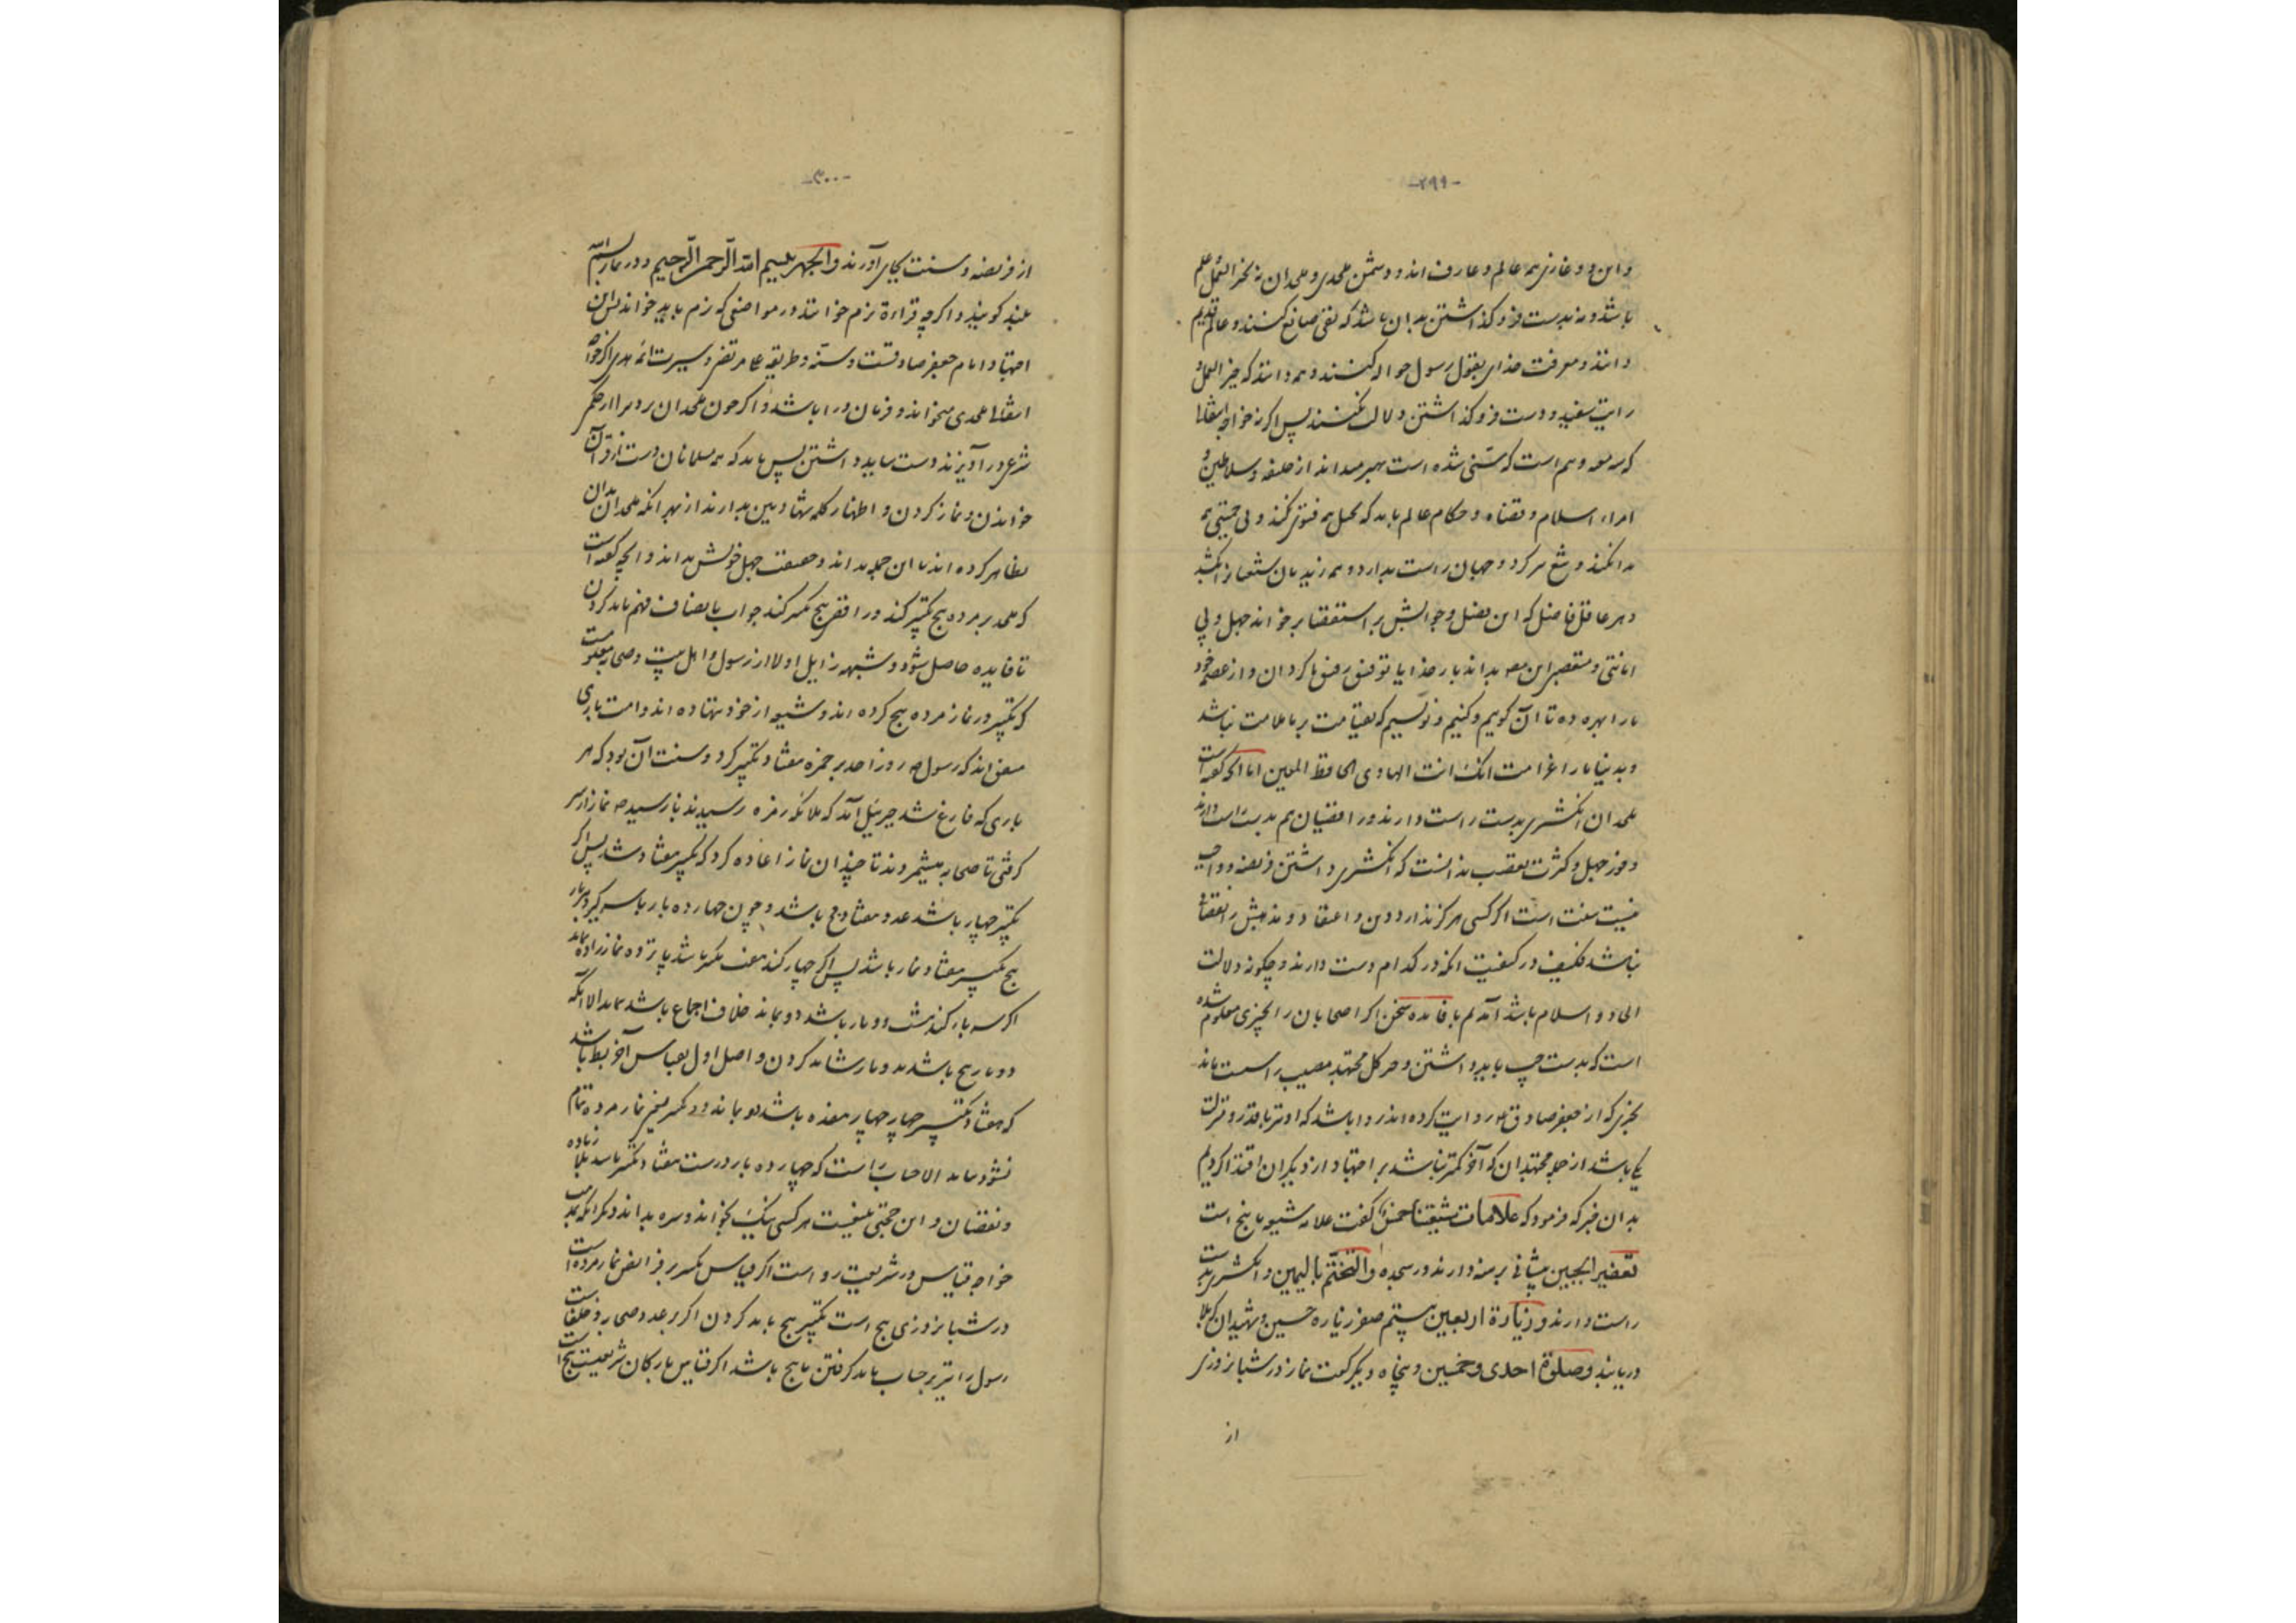 -۲۹۹-
و این دو غازی همه عالم و عارف اند و دشمن ملحدی و ملحدان نه بخیر العمل علم
باشد و نه بدست فرو گذاشتن بدان باشد که نفی صانع کنند و عالم قدیم
دانند و معرفت خدای بقول رسول حواله کنند و همه دانند که خیر العمل و
رایت سفید و دست فرو گذاشتن دلالت نکنند پس اگر نه خواجه
که است که سنی شده است بهتر میداند از خلیفه و سلاطین و
امراء اسلام و قضاه و حکام عالم باید که بجهل همه فتوی کند و بی حمیتی همه
و جهان راست بدارد و همه زندیقان
و هر عاقل فاضل که این فصل و جوابش بر استقصا برخواند جهل و بی
امانتی و تعصب این بداند بار خدایا توفیق رفیق ما گردان و از عصمت خود
ما را بهره ده تا آن گوییم و کنیم و نویسیم که بقیامت بر ما علامت نباشد
و بدنیا ما را غرامت انک انت الهادی الحافظ المعین اما آنچه گفته است
ملحدان انگشتری بدست راست دارند و رافضیان هم بدست راست دارند
و فور جهل و کثرت تعصب ندانست که انگشتری داشتن فریضه و واجب
نیست سنت است اگر کسی هرگز ندارد دین و اعتقاد و مذهبش را نقصان
نباشد فکیف در کیفیت آنکه در کدام دست دارند و چگونه دلالت
الحاد و اسلام باشد آمدیم با فایده سخن اگر اصحابان را بچیزی معلوم شده
است که بدست چپ باید داشتن و هر کل مجتهد مصیب راست باید
بخبری که از جعفر صادق ع روایت کرده اند روا باشد که او نیز با قدر و منزلت
یکی باشد از جمله مجتهدان که آخر کمتر نباشد بر اجتهاد از دیگران اقتدا کردیم
بدان خبر که فرمود که علامات شیعتنا خمس گفت علامه شیعه ما پنج است
تعفیر الجبین پیشانی برهنه دارند در سجده والتختم بالیمین و انگشتری بدست
راست دارند و زیارة اربعین بیستم صفر زیاره حسین و شهیدان کربلا
دریابند وصلوة احدی وخمسین و پنجاه و یک رکعت نماز در شبانروزی
از
-۳۰۰-
از فریضه و سنت بجای آرند والجهر ببسم الله الرحمن الرحیم و در نماز بسم الله
بلند گویند و اگرچه قراءة نرم خوانند در مواضعی که نرم باید خواند پس این
اجتهاد امام جعفر صادقست و سنة و طریقه علی مرتضی و سیرت ائمه هدی اگر خواجه
اینها ملحدی میخواند و فرمان روا باشد و اگر چون ملحدان
شرع در آویزند دست بباید داشتن پس باید که همه مسلمانان دست از قرآن
خواندن و نماز کردن و اظهار کلمه شهادتین بدارند از بهر آنکه ملحدان بدان
تظاهر کرده اند تا این جمله بداند و حقیقت جهل خویش بداند و آنچه گفته است
که ملحد بر مرده پنج تکبیر کند و رافضی پنج تکبیر کند جواب بانصاف فهم باید کردن
تا فایده حاصل شود و شبهه زایل اولا از رسول و اهل بیت و صحابه معلومست
که تکبیر در نماز مرده پنج کرده اند و شیعه از خود ننهاده اند و امت باری
متفق اند که رسول ص روز احد بر حمزه هفتاد تکبیر کرد و سنت آن بود که هر
باری که فارغ شد جبرئیل آمد که ملائکه رسیدند باز رسید ص نماز از سر
گرفتی تا صحابه میشمردند تا چندان نماز اعاده کرد که تکبیر هفتاد شد پس اگر
تکبیر چهار باشد عدد هفتاد باشد و چون چهارده بار باسر گیرد هر بار
پنج تکبیر هفتاد باشد پس اگر چهار کند
اگر سه بار کند باشد دو بماند خلاف اجماع باشد الا آنکه
دو بار پنج باشد و نشاید کردن و اصل اول بقیاس آخر باشد
که هفتاد تکبیر چهار چهار هفده باشد دو بماند و دو تکبیر نماز مرده تمام
نشود الا حساب راست که چهارده بار درست هفتاد تکبیر باشد بلا زیاده
و نقصان و این حجتی نیست هر کسی نیک بخواند و بداند دیگر آنکه بمذهب
خواجه قیاس در شریعت روا است اگر قیاس تکبیر بر فرایض نماز مرده است
در شبانروزی پنج است تکبیر پنج باید کردن اگر بر عدد صحابه و خلفاست
رسول را نیز بر حساب باید گرفتن تا پنج باشد اگر قیاس بارکان شریعت پنج است